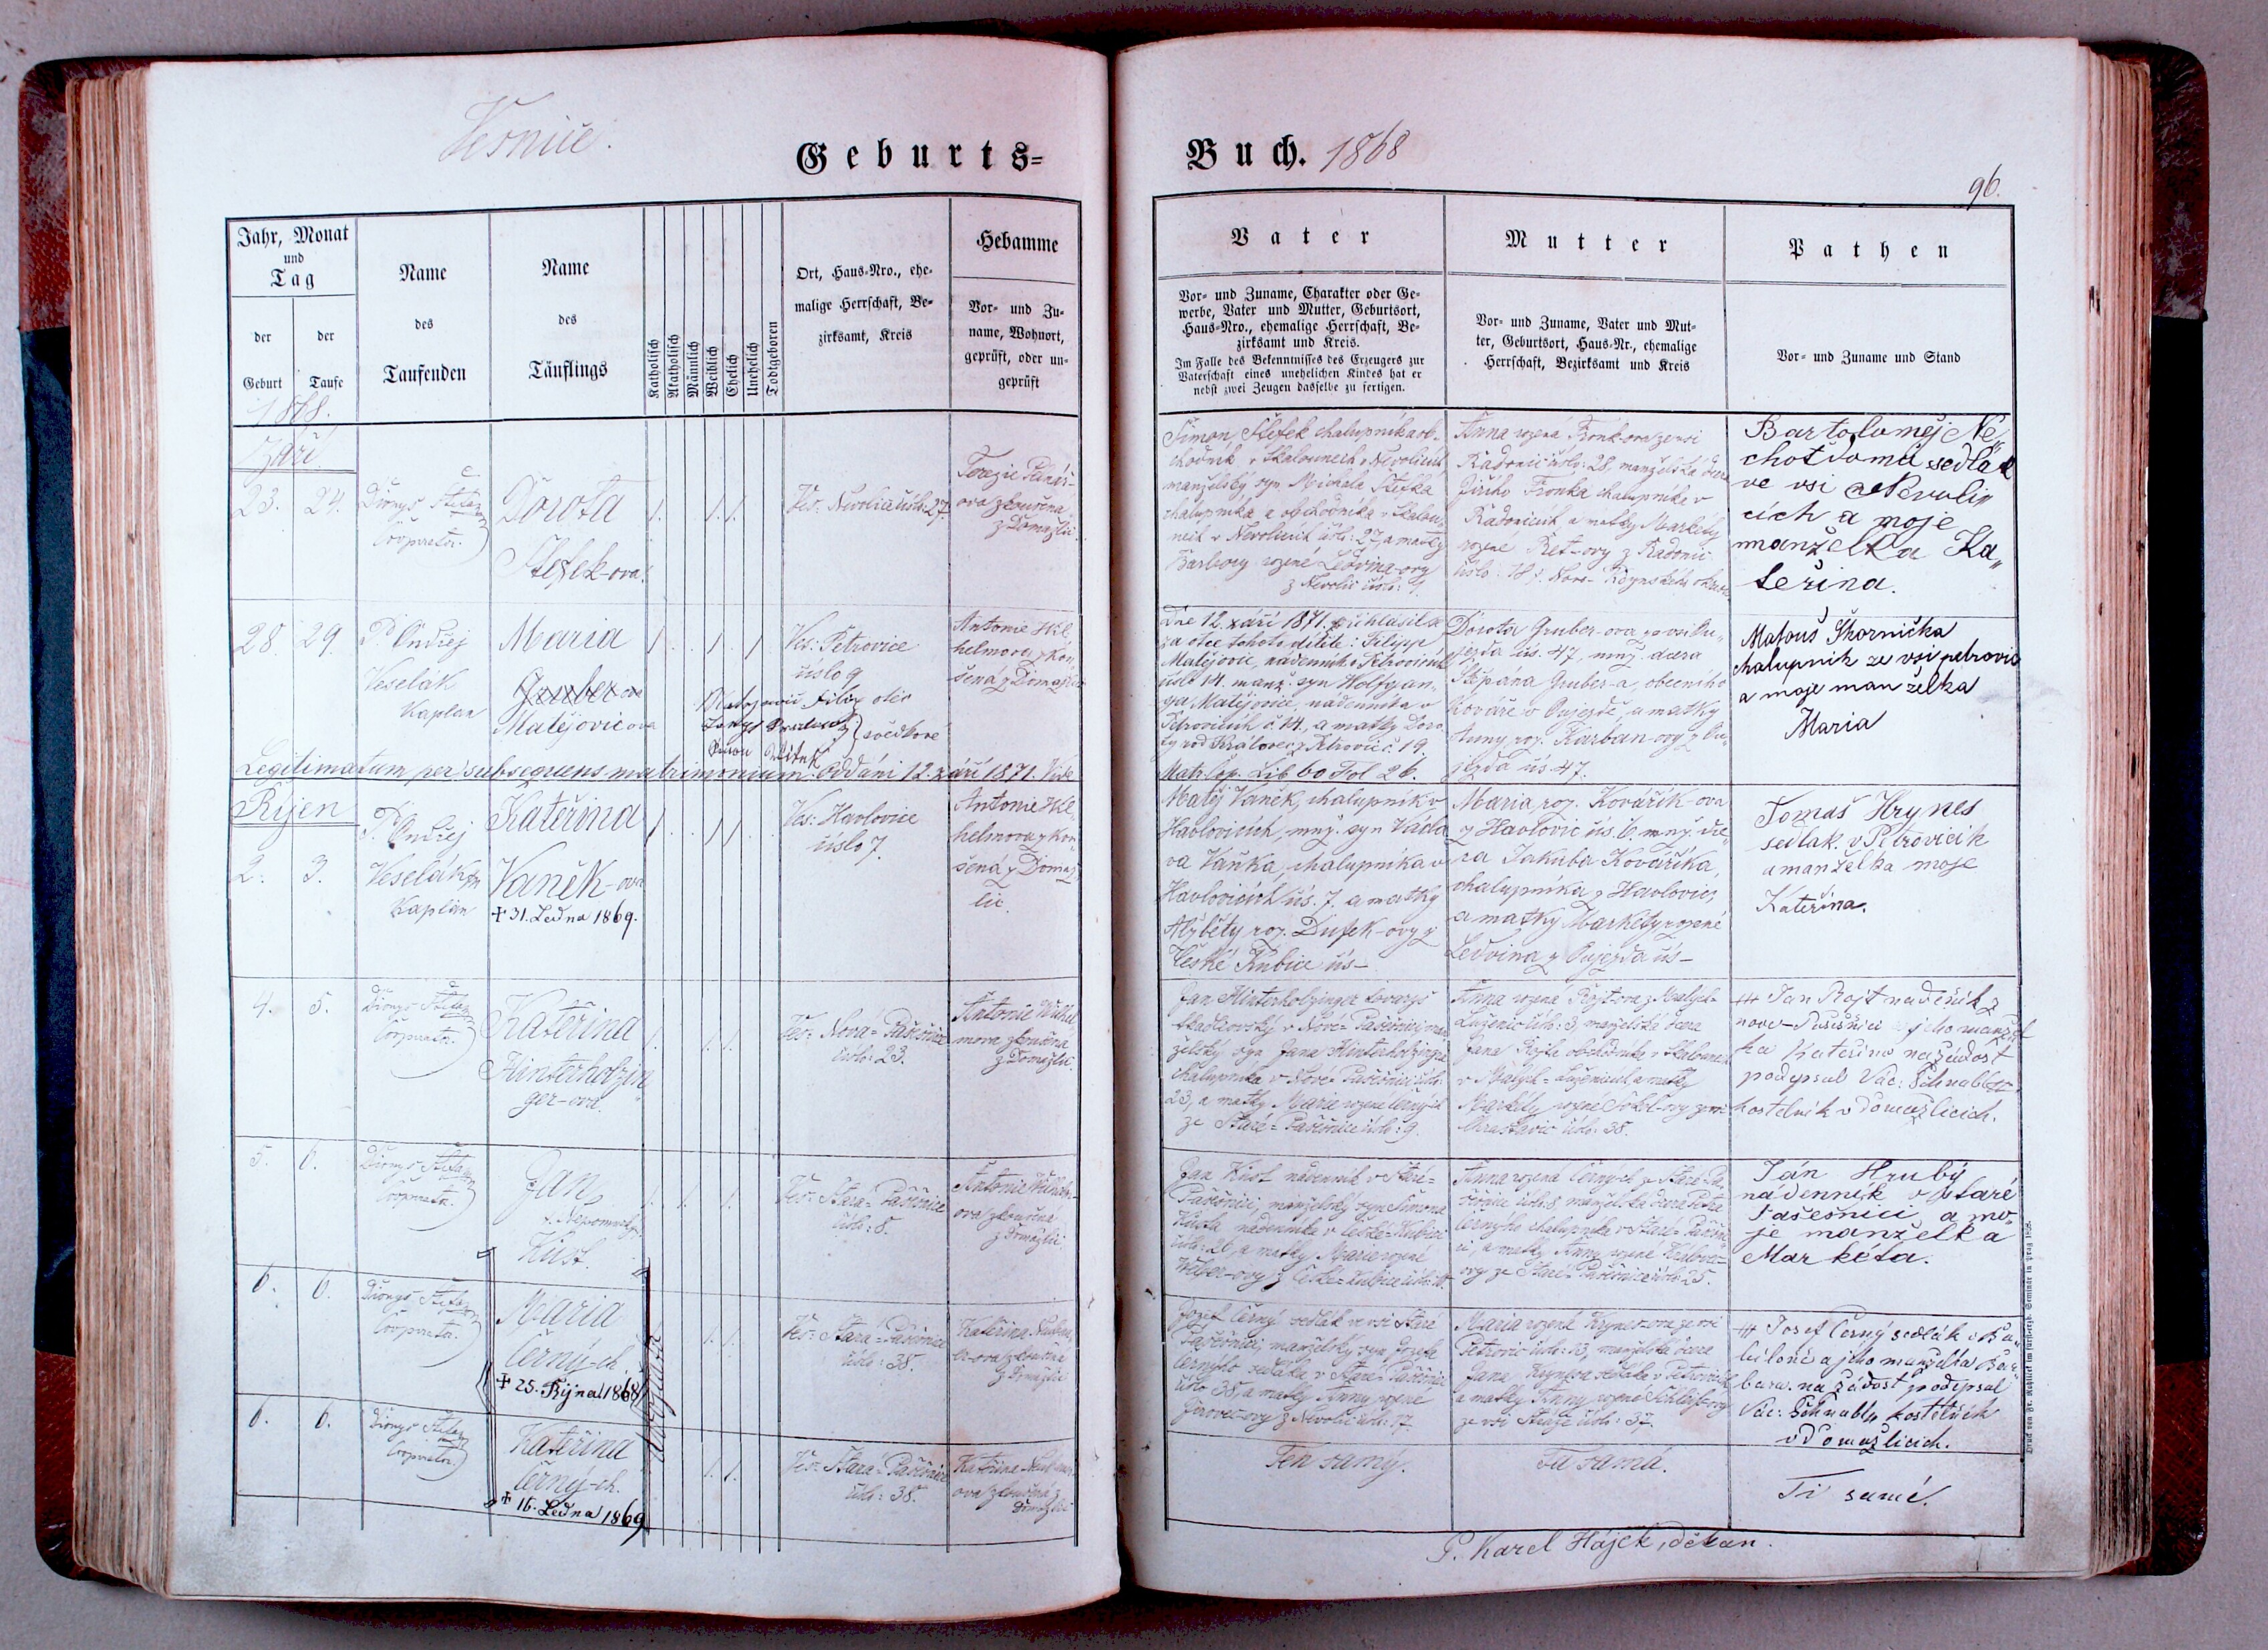 Vesnice.
Geburts=
Buch. 1868
96.
Jahr, Monat
und
Tag
der
Geburt
der
Taufe
Name
des
Taufenden
Name
des
Täuflings
Katholisch
Akatholisch
Männlich
Weiblich
Ehelich
Unehelich
Todtgeboren
Ort, Haus=Nro., ehe=
malige Herrschaft, Be=
zirksamt, Kreis
Hebamme
Vor= und Zu=
name, Wohnort,
geprüft, oder un=
geprüft
Vater
Vor= und Zuname, Charakter oder Ge=
werbe, Vater und Mutter, Geburtsort,
Haus=Nro., ehemalige Herrschaft, Be=
zirksamt und Kreis.
Im Falle des Bekenntnisses des Erzeugers zur
Vaterschaft eines unehelichen Kindes hat er
nebst zwei Zeugen dasselbe zu fertigen.
Mutter
Vor= und Zuname, Vater und Mut=
ter, Geburtsort, Haus=Nr., ehemalige
Herrschaft, Bezirksamt und Kreis
Pathen
Vor= und Zuname und Stand
1868.
Září
23. 24.
Dionys
Cooperator.
Dorota
Štefek-ova.
Ves: Nevolice čislo: 27.
Terezie
ova zkoušena
z Domažlic.
Šimon Štefek chalupník a ob=
chodník v Skalounech v Nevolicích
manželský syn Michala Štefka
chalupníka a obchodníka v Skalou=
nech v Nevolicích číslo: 27, a matky
Barbory rozené Ledvina-ovy
z Nevolic číslo: 4.
Anna rozená Fronk-ova ze vsi
Radonic číslo: 28, manželská dcera
Jiřího Fronka chalupníka v
Radonicích a matky Markéty
rozené Ret-ovy z Radonic
Bartoloměj Ne„
chotdoma sedlák
ve vsi Nevoli„
cích a moje
manželka Ka„
teřina.
28. 29.
P. Ondřej
Veselák
Kaplan
Maria
Gruber-ova
Matějovic ova
Ves: Petrovice
číslo 9
Matejovic Filip otec
svědkové
Antonie Wil
helmova zkou
šená z Domažlic
Dne 12. září 1871. přihlásil se
za otce tohoto dítěte: Filipp
Matějovic, nádenník v Petrovicích
čislo 14. manž. syn Wolfgan„
ga Matějovice, nádenníka v
Petrovicích č. 14., a matky Doro
ty rod. Královec z Petrovic č. 19.
Matr. kop. Lib 60 Fol 26.
Dorota Gruber-ova ze vsi Ou„
jezda čís. 47, mnž. dcera
Štěpana Gruber-a, obecního
kováře v Oujezdě, a matky
Anny roz. Karban-ovy z Ou„
jezda čís. 47.
Matouš Skornička
chalupnik ze vsi petrovic
a moje manželka
Maria
Legitimatum per subsequens matrimonium. Oddáni 12. září 1871.
Říjen
2. 3.
P. Ondřej
Veselák
Kaplán
Kateřina
Vaněk-ova
† 31. Ledna 1869.
Ves: Havlovice
číslo 7.
Antonie Wil
helmova z kou
šená z Domaž
lic.
Matěj Vaněk, chalupník v
Havlovicích, mnž. syn Václa
va Vaňka, chalupníka v
Havlovicích čís. 7. a matky
Alžběty roz. Dufek-ovy z
České Kubice čís—
Maria roz. Kovářík-ova
z Havlovic čís. 6. mnž. dce
ra Jakuba Kováříka,
chalupníka z Havlovic,
a matky Markety rozené
Ledvina z Oujezda čís—
Tomaš Hrynes
sedlak. v Petrovicik
a manželka moje
Kateřina.
4. 5.
Dionys
Cooperator.
Kateřina
Hinterholzin
ger-ova.
Ves: Nová=Pašešnice
číslo: 23.
Antonie Wilhel
mova zkoušena
z Domažlic.
Jan Hinterholzinger tovaryš
v Nové=Pašešnici man
želský syn Jana Hinterholzingra
chalupníka v Nové=Pašešnici číslo:
23, a matky Marie rozené Černých
ze Staré=Pašešnice číslo: 9.
Anna rozená Rojt-ova z Malých=
Luženic číslo: 3, manželská dcera
Jana Rojta obchodníka v Skalounech
v Malých=Luženicích, a matky
Markéty rozené Sokol-ovy ze vsi
Chrastavic číslo: 38.
Jan Rojt nadeník z
nové-Pašešnici a jeho manžel
ka Kateřina na žádost
podepsal Vác: Schnabl
kostelník v Domažlicích.
5. 6.
Dionys
Cooperator.
Jan
Kůst.
Ves: Stará=Pašešnice
číslo: 8.
Antonie Wilhelm-
ova zkoušena
z Domažlic
Jan Kůst nádenník v Staré=
Pašešnici, manželský syn Šimona
Kůsta nádenníka v České=Kubici
číslo: 26, a matky Marie rozené
Weber-ovy z České=Kubice číslo: 10.
Anna rozená Černých ze Staré Pa=
šešnice číslo: 8, manželská dcera Petra
Černýho chalupníka v Staré=Pašešni
ci, a matky Anny rozené Královec=
ovy ze Staré=Pašešnice číslo: 25.
Ján Hrubý
nádenník v staré
Pašešnici a mo„
je manželka
Markéta.
6. 6.
Dionys
Cooperator.
Maria
Černý-ch
† 25. Října 1868
Ves: Stará=Pašešnice
číslo: 38.
Kateřina
ova zkoušená
z Domažlic
Josef Černý sedlák ve vsi Staré
Pašešnici, manželský syn Josefa
Černýho sedláka v Staré=Pašešnici
číslo 38, a matky Anny rozené
Jírovec-ovy z Nevolic číslo: 17.
Maria rozená Krynes-ova ze vsi
Petrovic číslo: 13, manželská dcera
Jana Krynesa sedláka v Petrovicích
a matky Anny rozené
ze vsi Stráže číslo: 37.
Josef Černý sedlák v Ba„
biloně a jeho manželka Bar„
bara. na žádost podepsal
Vác: Schnabl kostelník
v Domažlicích.
6. 6.
Dionys
Cooperator.
Kateřina
Černý-ch.
† 16. Ledna 1869
Ves: Stará=Pašešnice
číslo: 38.
Kateřina
ova zkoušená z
Domažlic
Ten samý.
Ta samá.
Ti samé.
P. Karel Hájek, děkan.